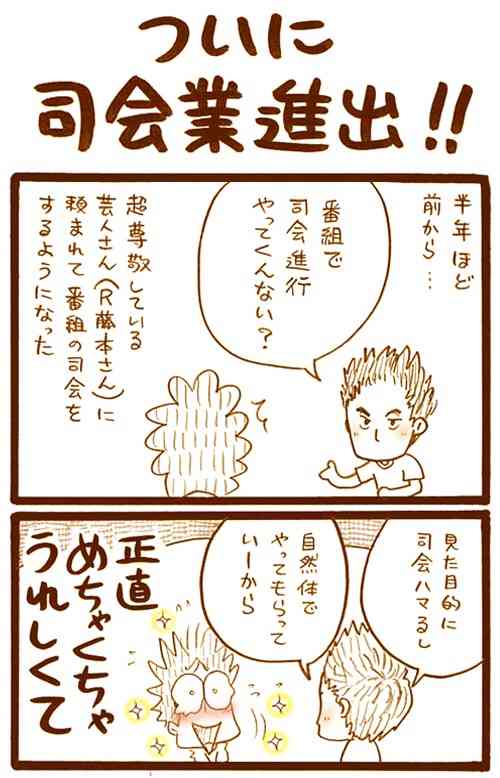 ついに
司会業進出!!
半年ほど
前から…
番組で
司会進行
やってくんない?
て
超尊敬している
芸人さん(R藤本さん)に
頼まれて番組の司会を
するようになった
見た目的に
司会ハマるし
自然体で
やってもらって
いーから
正直
めちゃくちゃ
うれしくて